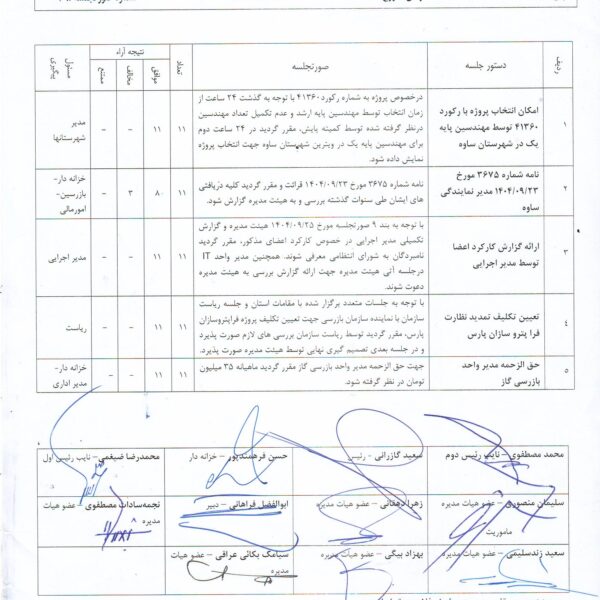 ردیف
دستور جلسه
صورتجلسه
تعداد
نتیجه آراء
موافق
مخالف
ممتنع
مسئول پیگیری
۱
امکان انتخاب پروژه با رکورد
۴۱۳۶۰ توسط مهندسین پایه
یک در شهرستان ساوه
درخصوص پروژه به شماره رکورد ۴۱۳۶۰ با توجه به گذشت ۲۴ ساعت از
زمان انتخاب توسط مهندسین پایه ارشد و عدم تکمیل تعداد مهندسین
درنظر گرفته شده توسط کمیته پایش، مقرر گردید در ۲۴ ساعت دوم
برای مهندسین پایه یک در ویترین شهرستان ساوه جهت انتخاب پروژه
نمایش داده شود.
۱۱
۱۱
–
–
مدیر
شهرستانها
۲
نامه شماره ۳۶۷۵ مورخ
۱۴۰۴/۰۹/۲۳ مدیر نمایندگی
ساوه
نامه شماره ۳۶۷۵ مورخ ۱۴۰۴/۰۹/۲۳ قرائت و مقرر گردید کلیه دریافتی
های ایشان طی سنوات گذشته بررسی و به هیئت مدیره گزارش شود.
۱۱
۸۰
۳
–
خزانه دار-
بازرسین-
امورمالی
۳
ارائه گزارش کارکرد اعضا
توسط مدیر اجرایی
با توجه به بند ۹ صورتجلسه مورخ ۱۴۰۴/۰۹/۲۵ هیئت مدیره و گزارش
تکمیلی مدیر اجرایی در خصوص کارکرد اعضای مذکور، مقرر گردید
نامبردگان به شورای انتظامی معرفی شوند. همچنین مدیر واحد IT
درجلسه آتی هیئت مدیره جهت ارائه گزارش بررسی به هیئت مدیره
دعوت شوند.
۱۱
۱۱
–
–
مدیر اجرایی
۴
تعیین تکلیف تمدید نظارت
فرا پترو سازان پارس
با توجه به جلسات متعدد برگزار شده با مقامات استان و جلسه ریاست
سازمان با نماینده سازمان بازرسی جهت تعیین تکلیف پروژه فراپتروسازان
پارس، مقرر گردید توسط ریاست سازمان بررسی های لازم صورت پذیرد
و در جلسه بعدی تصمیم گیری نهایی توسط هیئت مدیره صورت پذیرد.
۱۱
۱۱
–
–
ریاست
۵
حق الزحمه مدیر واحد
بازرسی گاز
جهت حق الزحمه مدیر واحد بازرسی گاز مقرر گردید ماهیانه ۳۵ میلیون
تومان در نظر گرفته شود.
۱۱
۱۱
–
–
خزانه دار-
مدیر اداری
محمد مصطفوی – نایب رئیس دوم
سعید گازرانی – رئیس
حسن فرهمندپور – خزانه دار
محمدرضا ضیغمی – نایب رئیس اول
سلیمان منصوری – عضو هیات مدیره
ماموریت
زهرا دهقانی – عضو هیات مدیره
ابوالفضل فراهانی – دبیر
نجمه‌سادات مصطفوی – عضو هیات
مدیره
سعید زندسلیمی – عضو هیات مدیره
بهزاد بیگی – عضو هیات مدیره
سیامک یکائی عراقی – عضو هیات
مدیره